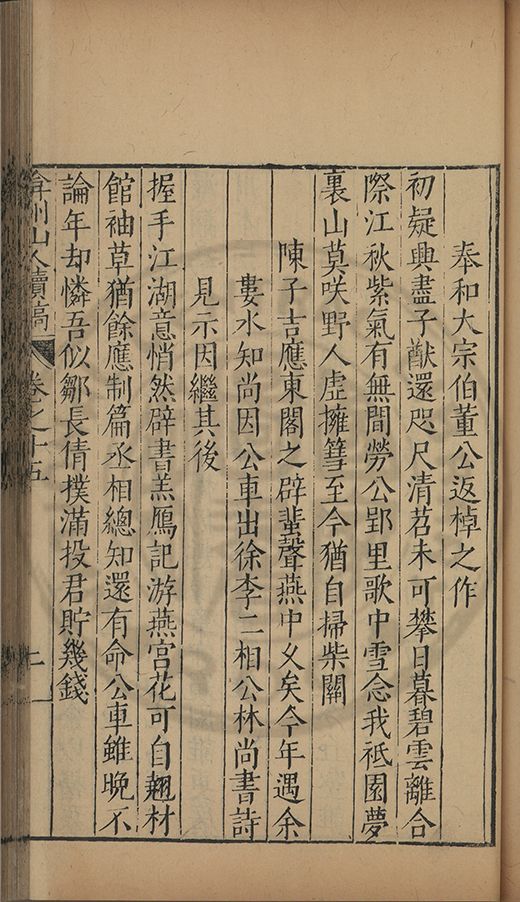 奉和大宗伯董公返棹之作
初疑興盡子猷還咫尺清苕未可攀日暮碧雲離合
際江秋紫氣有無間勞公郢里歌中雪念我祇園夢
裏山莫咲野人虛擁篲至今猶自掃柴關
陳子吉應東閣之辟蜚聲燕中久矣今年遇余
婁水知尚因公車出徐李二相公林尚書詩
見示因繼其後
握手江湖意悄然辟書羔鴈記游燕宮花可自翹材
館袖草猶餘應制篇丞相總知還有命公車雖晚不
論年却憐吾似鄒長倩撲滿投君貯幾錢
弇州山人續稿 卷之十五